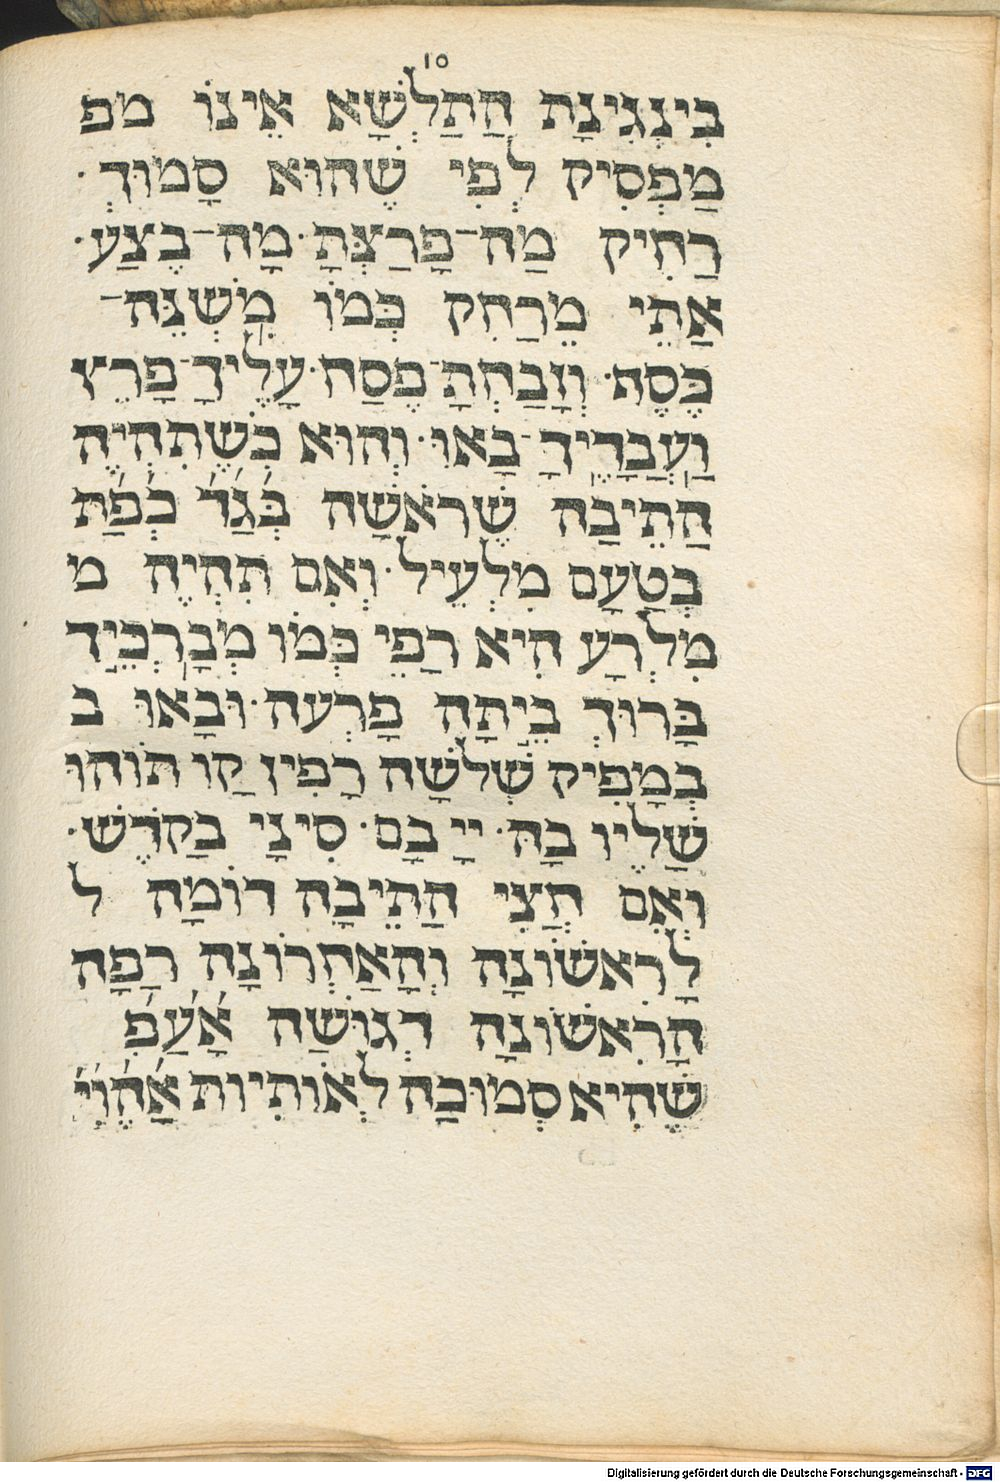 10
בִּנְגִינַת הַתַּלְשָׁא אֵינוֹ מפ
מַפְסִיק לְפִי שֶׁהוּא סָמוּךְ ·
רַחִיק מַה־פָּרַצְתָּ · מָה־בֶּצַע ·
אַתֵי מֵרַחִק כְּמוֹ מִשְׁנֶה־
כֶּסֶף · וְזָבַחְתָּ־פֶּסַח · עָלֶיךָ־פָרֶץ
וַעֲבָדֶיךָ־בָּאוּ · וְהוּא כְּשֶׁתִּהְיֶה
הַתֵיבָה שֶׁרֹאשָׁהּ בְּגַ֗ד֗ כְּפַ֗ת֗
בְטַעָם מִלְעֵיל · וְאִם תִּהְיֶה מ
מִלְרַע הִיא רַפֵי כְּמוֹ מְבָרְכֶיךָ
בָּרוּךְ בֵיתָה פַרְעֹה · וּבָאוּ ב
בְמַפִיק שְׁלשָׁה רָפִין קַו תוֹהוּ
שָׁלֵיו בָהּ · יְיָ בָם · סִינַי בַּקֹדֶשׁ ·
וְאִם חֲצִי הַתֵיבָה דוֹמָה ל
לָרִאשׁוֹנָה וְהָאַחְרוֹנָה רַפָה
הָרִאשׁוֹנָה דְגוּשָׁה אַ֗עַ֗פִ֗
שֶׁהִיא סְמוּכָה לְאוֹתִיוֹת אַ֗הֶ֗וִ֗י֗
Digitalisierung gefördert durch die Deutsche Forschungsgemeinschaft - DFG